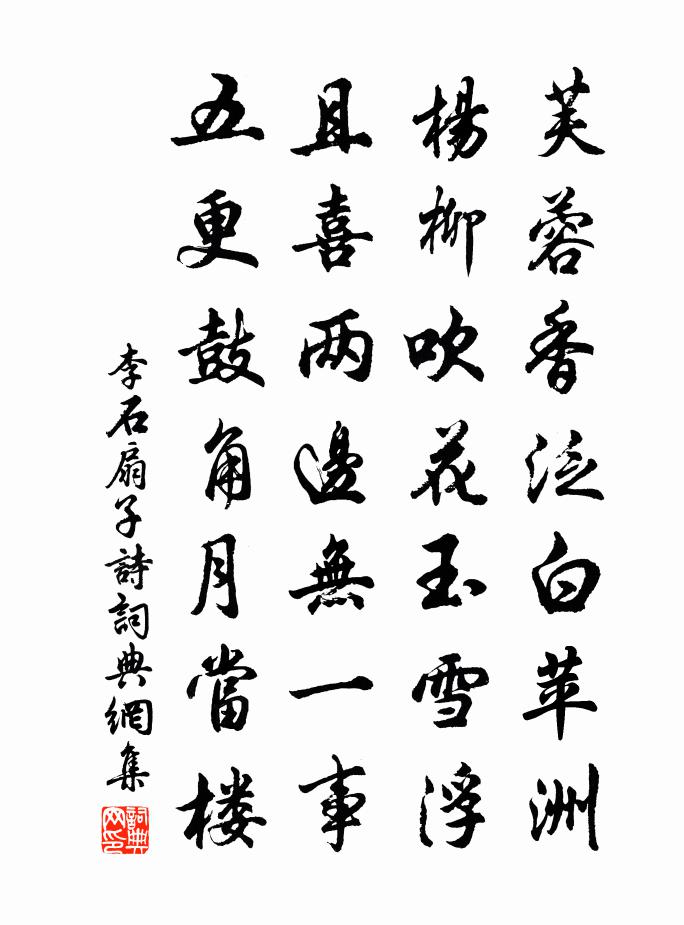 芙蓉香泛白苹洲
楊柳吹花玉雪浮
且喜两邊無一事
五更鼓角月當楼
李石扇子詩詞典網集
詞典網印